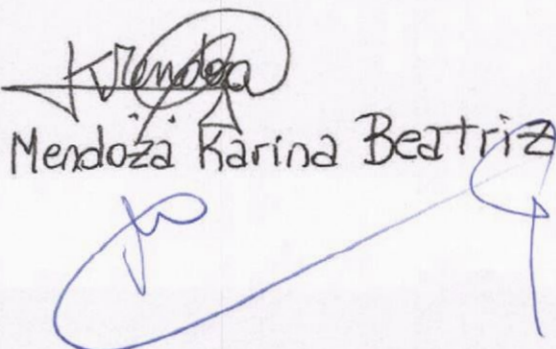 KMendoza
Mendoza Karina Beatriz